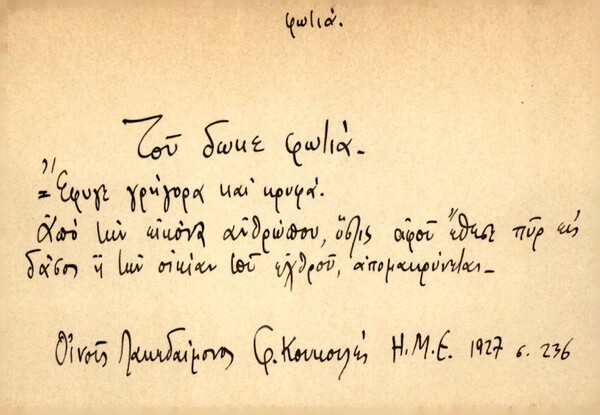 φωτιά.
Τοῦ δωκε φωτιά.
= Ἔφυγε γρήγορα καὶ κρυφά.
Ἀπὸ τὴν εἰκόνα ἀνθρώπου, ὅστις ἀφοῦ ἔθεσε πῦρ εἰς
δάσος ἢ τὴν οἰκίαν τοῦ ἐχθροῦ, ἀπομακρύνεται.
Οἰνοῦς Λακεδαίμονος Φ. Κουκουλές Η.Μ.Ε. 1927 σ. 236